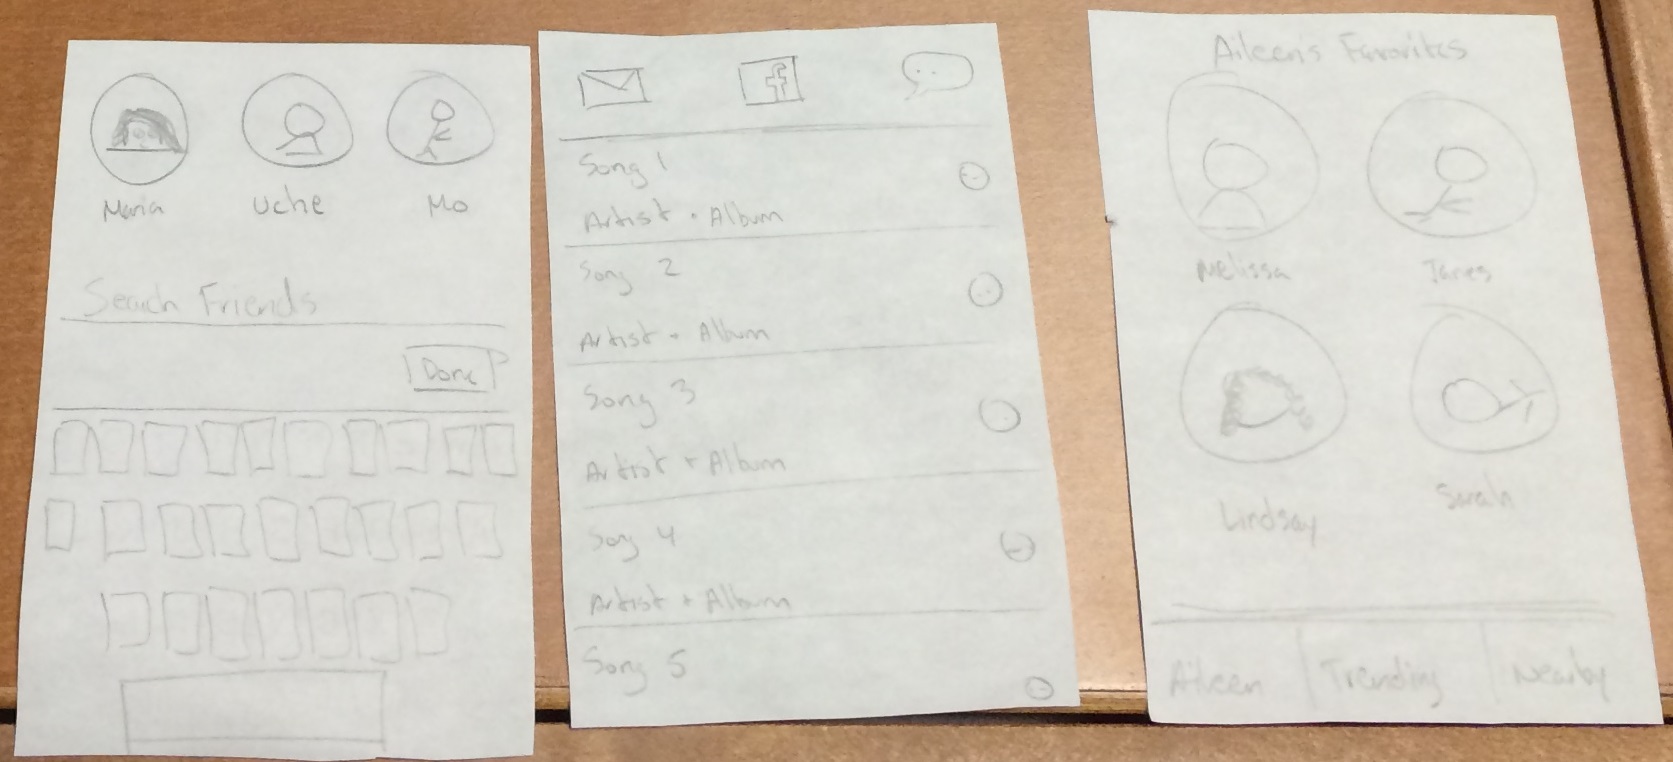 Maria Uche Mo
Search Friends
Done
f
Song 1
Artist · Album
Song 2
Artist · Album
Song 3
Artist · Album
Song 4
Artist · Album
Song 5
Aileen's Favorites
Melissa James
Lindsay Sarah
Aileen Trending Nearby